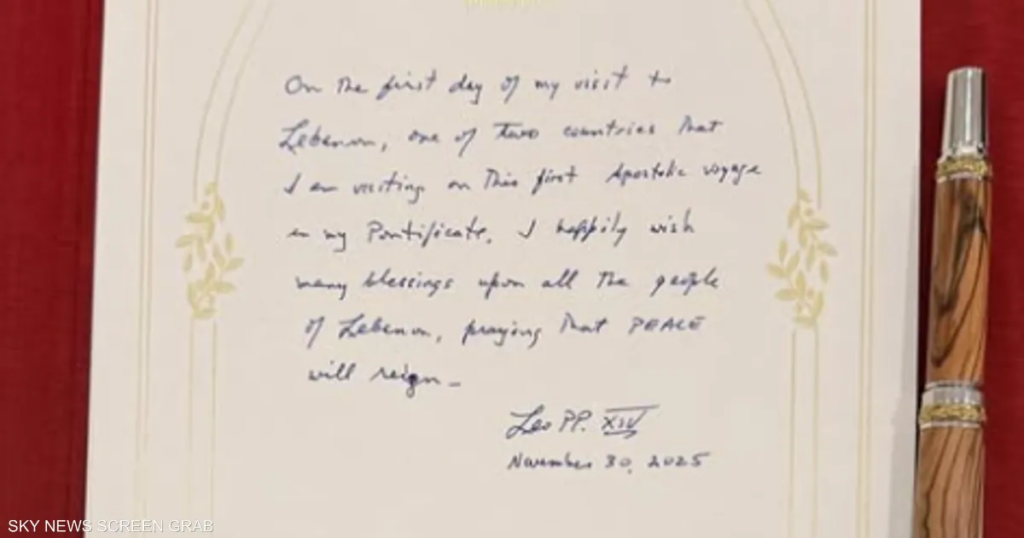 On the first day of my visit to
Lebanon, one of two countries that
I am visiting on this first Apostolic voyage
in my Pontificate, I happily wish
many blessings upon all the people
of Lebanon, praying that PEACE
will reign_
Leo PP. XIV
November 30, 2025
SKY NEWS SCREEN GRAB